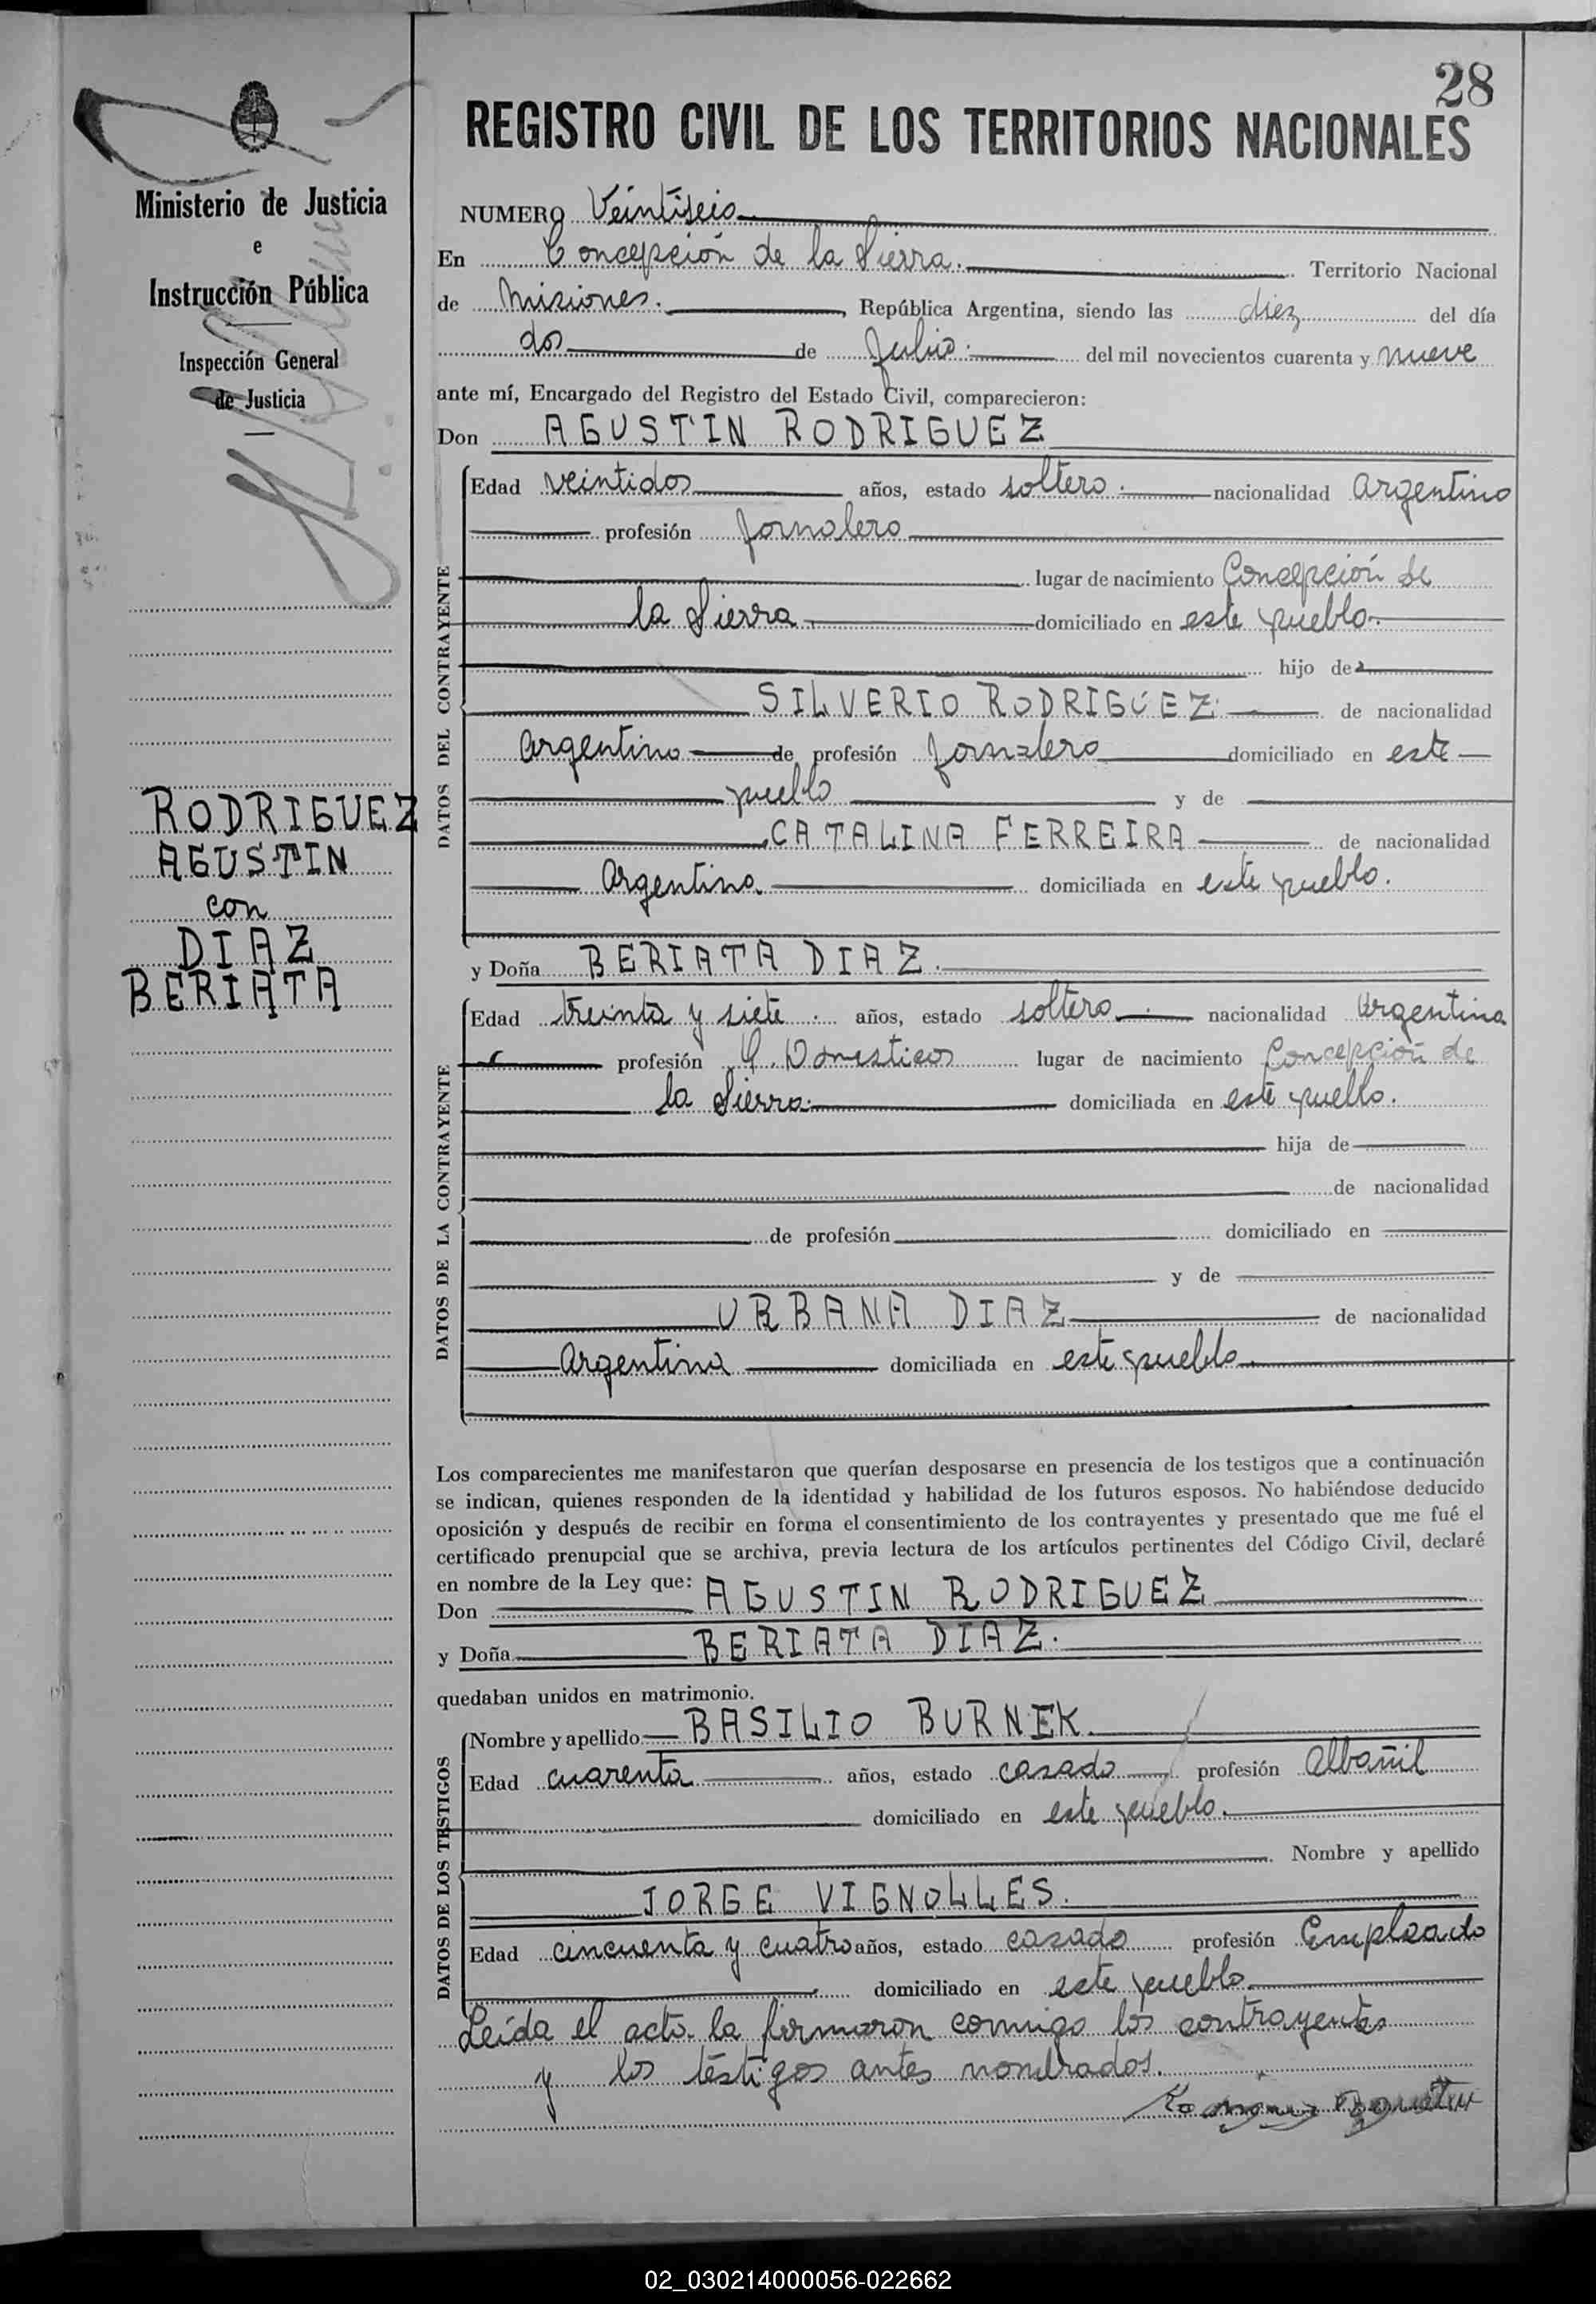 28
REGISTRO CIVIL DE LOS TERRITORIOS NACIONALES
Ministerio de Justicia
e
Instrucción Pública
Inspección General
de Justicia
RODRIGUEZ
AGUSTIN
con
DIAZ
BERIATA
NUMERO Veintiseis
En Concepción de la Sierra. Territorio Nacional
de Misiones. República Argentina, siendo las diez del día
dos de Julio. del mil novecientos cuarenta y nueve
ante mí, Encargado del Registro del Estado Civil, comparecieron:
Don AGUSTIN RODRIGUEZ
DATOS DEL CONTRAYENTE
Edad veintidos años, estado soltero. nacionalidad Argentino
profesión Jornalero
lugar de nacimiento Concepción de
la Sierra. domiciliado en este pueblo.
hijo de
SILVERIO RODRIGUEZ de nacionalidad
Argentino de profesión Jornalero domiciliado en este
pueblo y de
CATALINA FERREIRA de nacionalidad
Argentina domiciliada en este pueblo.
y Doña BERIATA DIAZ.
DATOS DE LA CONTRAYENTE
Edad treinta y siete. años, estado soltera. nacionalidad Argentina
profesión Q. Domesticos lugar de nacimiento Concepción de
la Sierra. domiciliada en este pueblo.
hija de
de nacionalidad
de profesión domiciliado en
y de
URBANA DIAZ de nacionalidad
Argentina domiciliada en este pueblo.
Los comparecientes me manifestaron que querían desposarse en presencia de los testigos que a continuación
se indican, quienes responden de la identidad y habilidad de los futuros esposos. No habiéndose deducido
oposición y después de recibir en forma el consentimiento de los contrayentes y presentado que me fué el
certificado prenupcial que se archiva, previa lectura de los artículos pertinentes del Código Civil, declaré
en nombre de la Ley que:
Don AGUSTIN RODRIGUEZ
y Doña BERIATA DIAZ.
quedaban unidos en matrimonio.
DATOS DE LOS TESTIGOS
Nombre y apellido BASILIO BURNEK.
Edad cuarenta años, estado casado profesión Albañil
domiciliado en este pueblo.
Nombre y apellido
JORGE VIGNOLLES.
Edad cincuenta y cuatro años, estado casado profesión Empleado
domiciliado en este pueblo.
Leída el acta la firmaron conmigo los contrayentes
y los testigos antes nombrados.
02_030214000056-022662